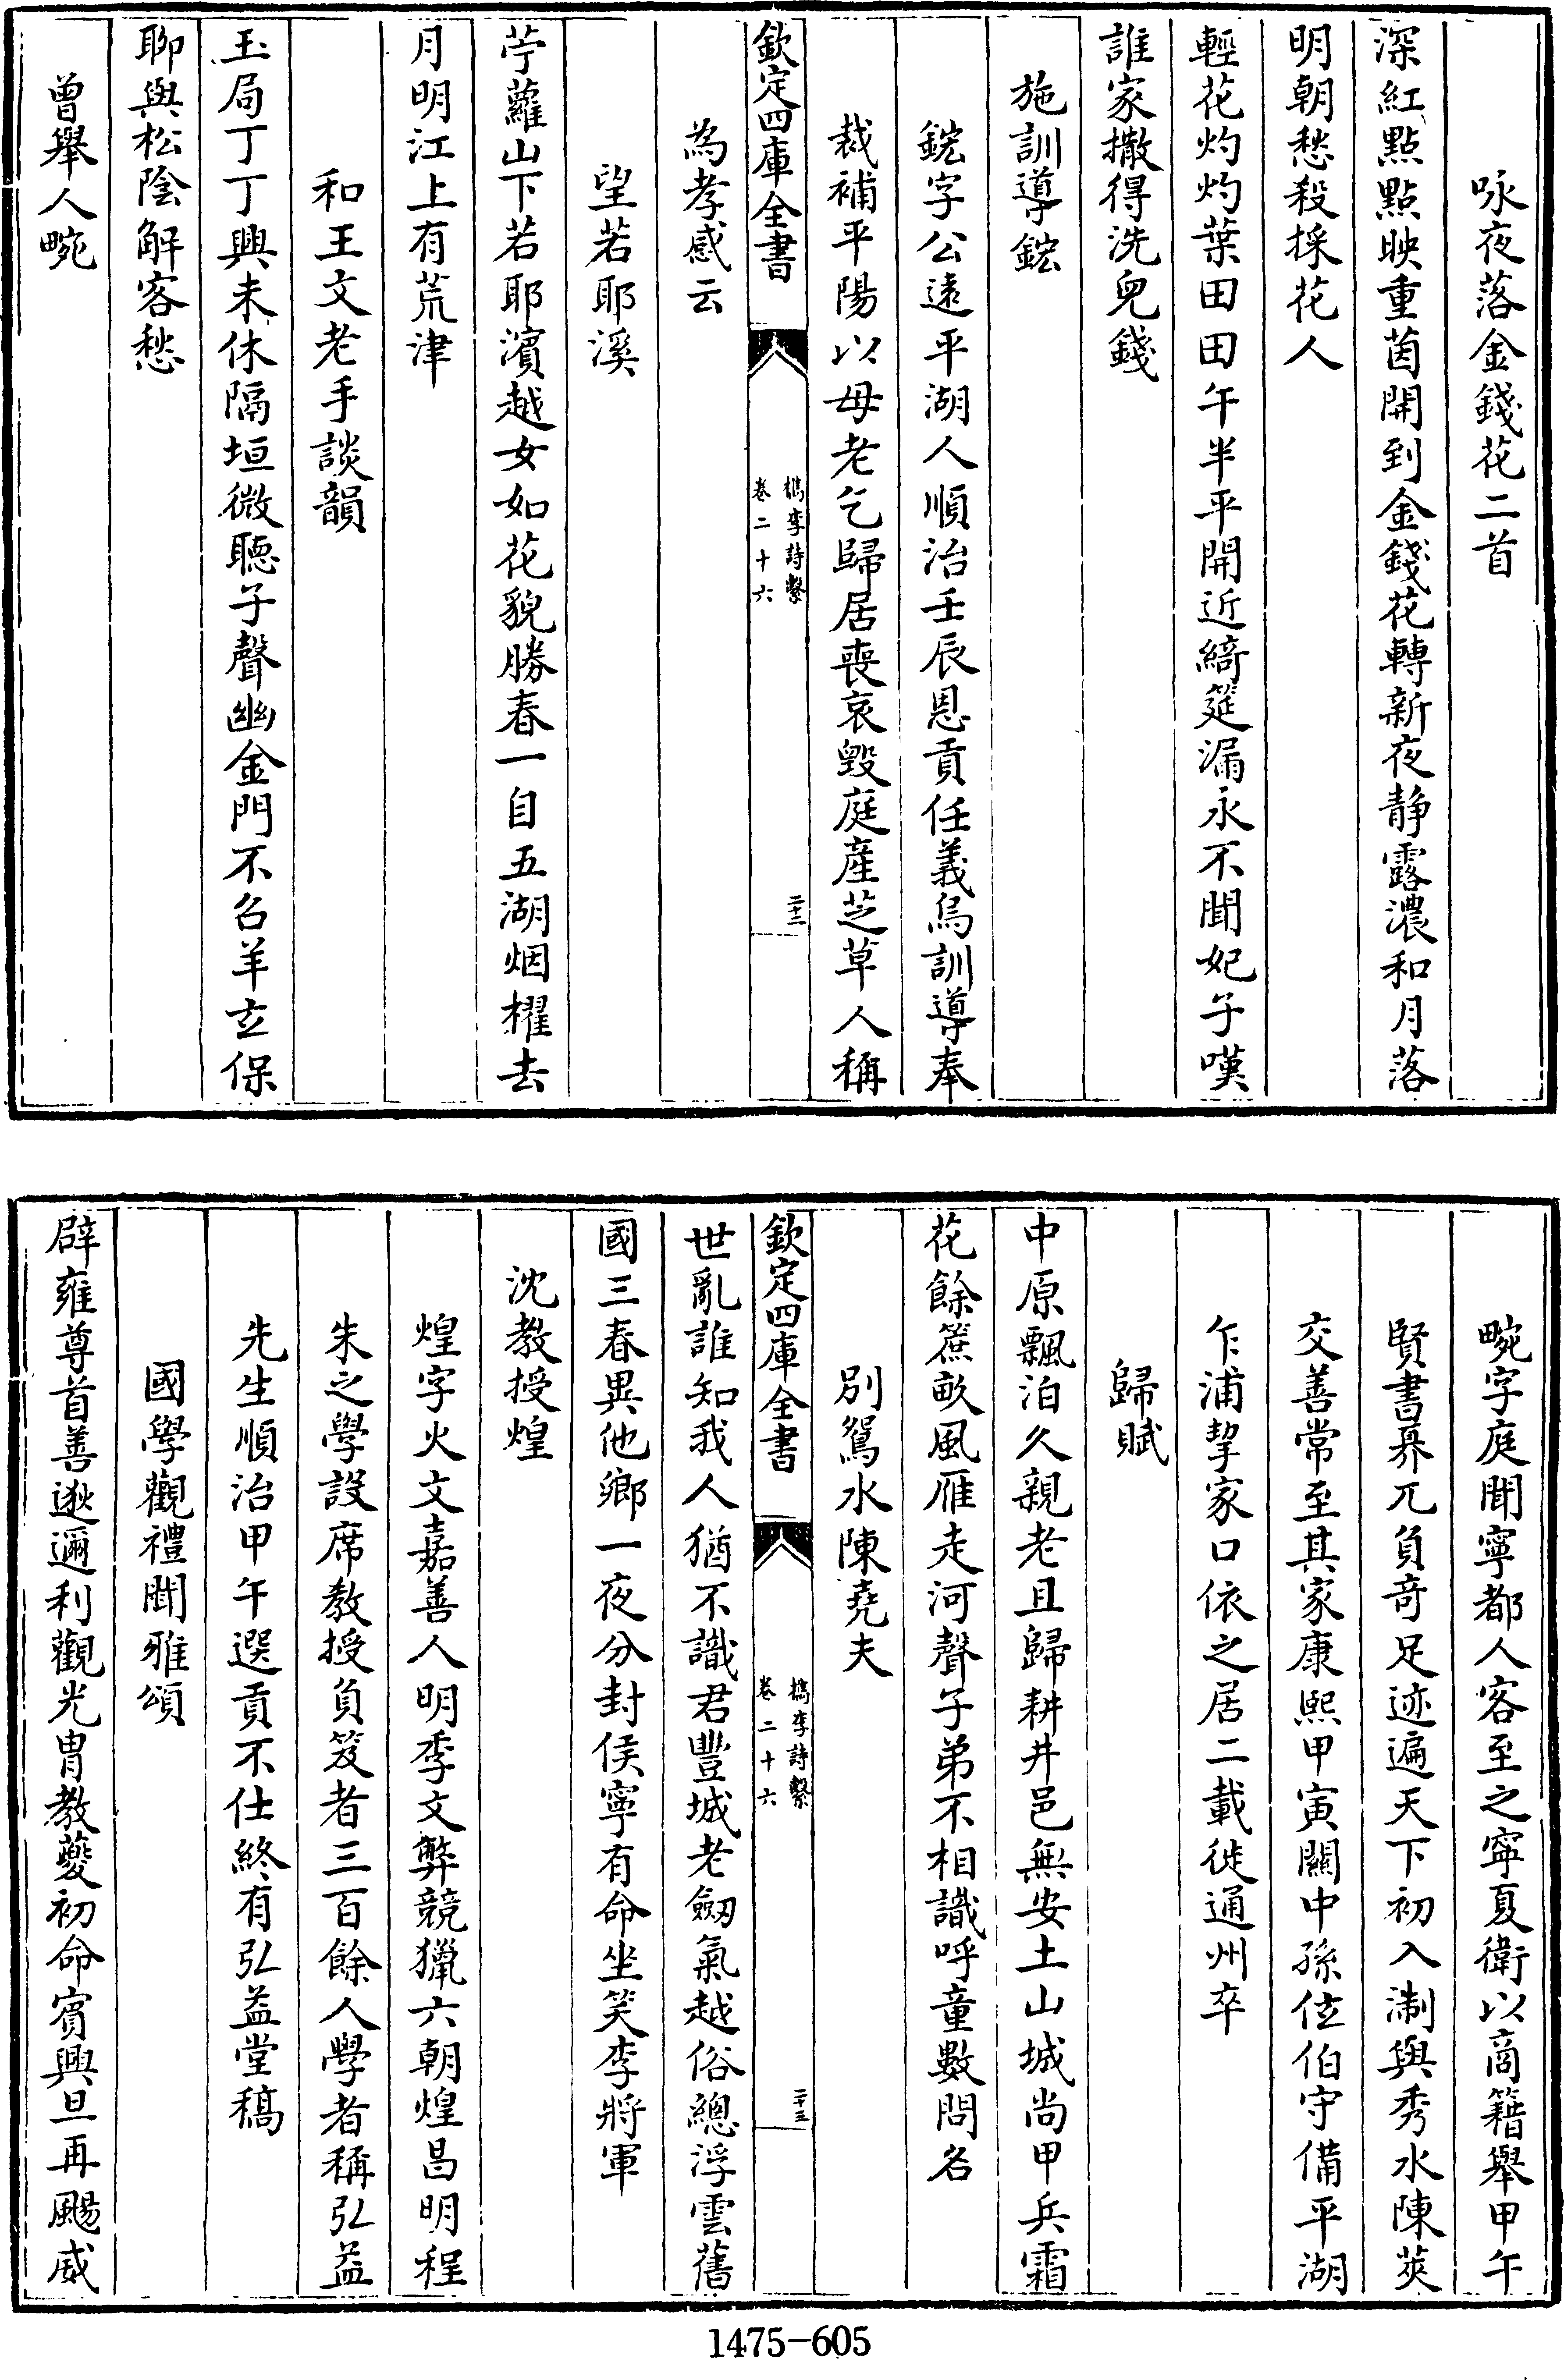 咏夜落金錢花二首
深紅點點映重茵開到金錢花轉新夜静露濃和月落
明朝愁殺採花人
輕花灼灼葉田田午半平開近綺筵漏永不聞妃子嘆
誰家撒得洗兒錢
施訓導鋐
鋐字公遠平湖人順治壬辰恩貢任義烏訓導奉
裁補平陽以母老乞歸居喪哀毀庭産芝草人稱
欽定四庫全書
檇李詩繫
卷二十六
二十二
為孝感云
望若耶溪
苧蘿山下若耶濱越女如花貌勝春一自五湖烟櫂去
月明江上有荒津
和王文老手談韻
玉局丁丁興未休隔垣微聽子聲幽金門不召羊玄保
聊與松陰解客愁
曾舉人畹
畹字庭聞寧都人客至之寧夏衛以商籍舉甲午
賢書界兀負奇足迹遍天下初入淛與秀水陳莢
交善常至其家康熙甲寅關中孫位伯守備平湖
乍浦挈家口依之居二載徙通州卒
歸賦
中原飄泊久親老且歸耕井邑無安土山城尚甲兵霜
花餘蔗畝風雁走河聲子弟不相識呼童數問名
別鴛水陳堯夫
欽定四庫全書
檇李詩繫
卷二十六
二十三
世亂誰知我人猶不識君豐城老劒氣越俗總浮雲舊
國三春異他鄉一夜分封侯寧有命坐笑李將軍
沈教授煌
煌字火文嘉善人明季文弊競獵六朝煌昌明程
朱之學設席教授負笈者三百餘人學者稱弘益
先生順治甲午選貢不仕終有弘益堂稿
國學觀禮聞雅頌
辟雍尊首善逖邇利觀光胄教夔初命賓興旦再颺威
1475-605